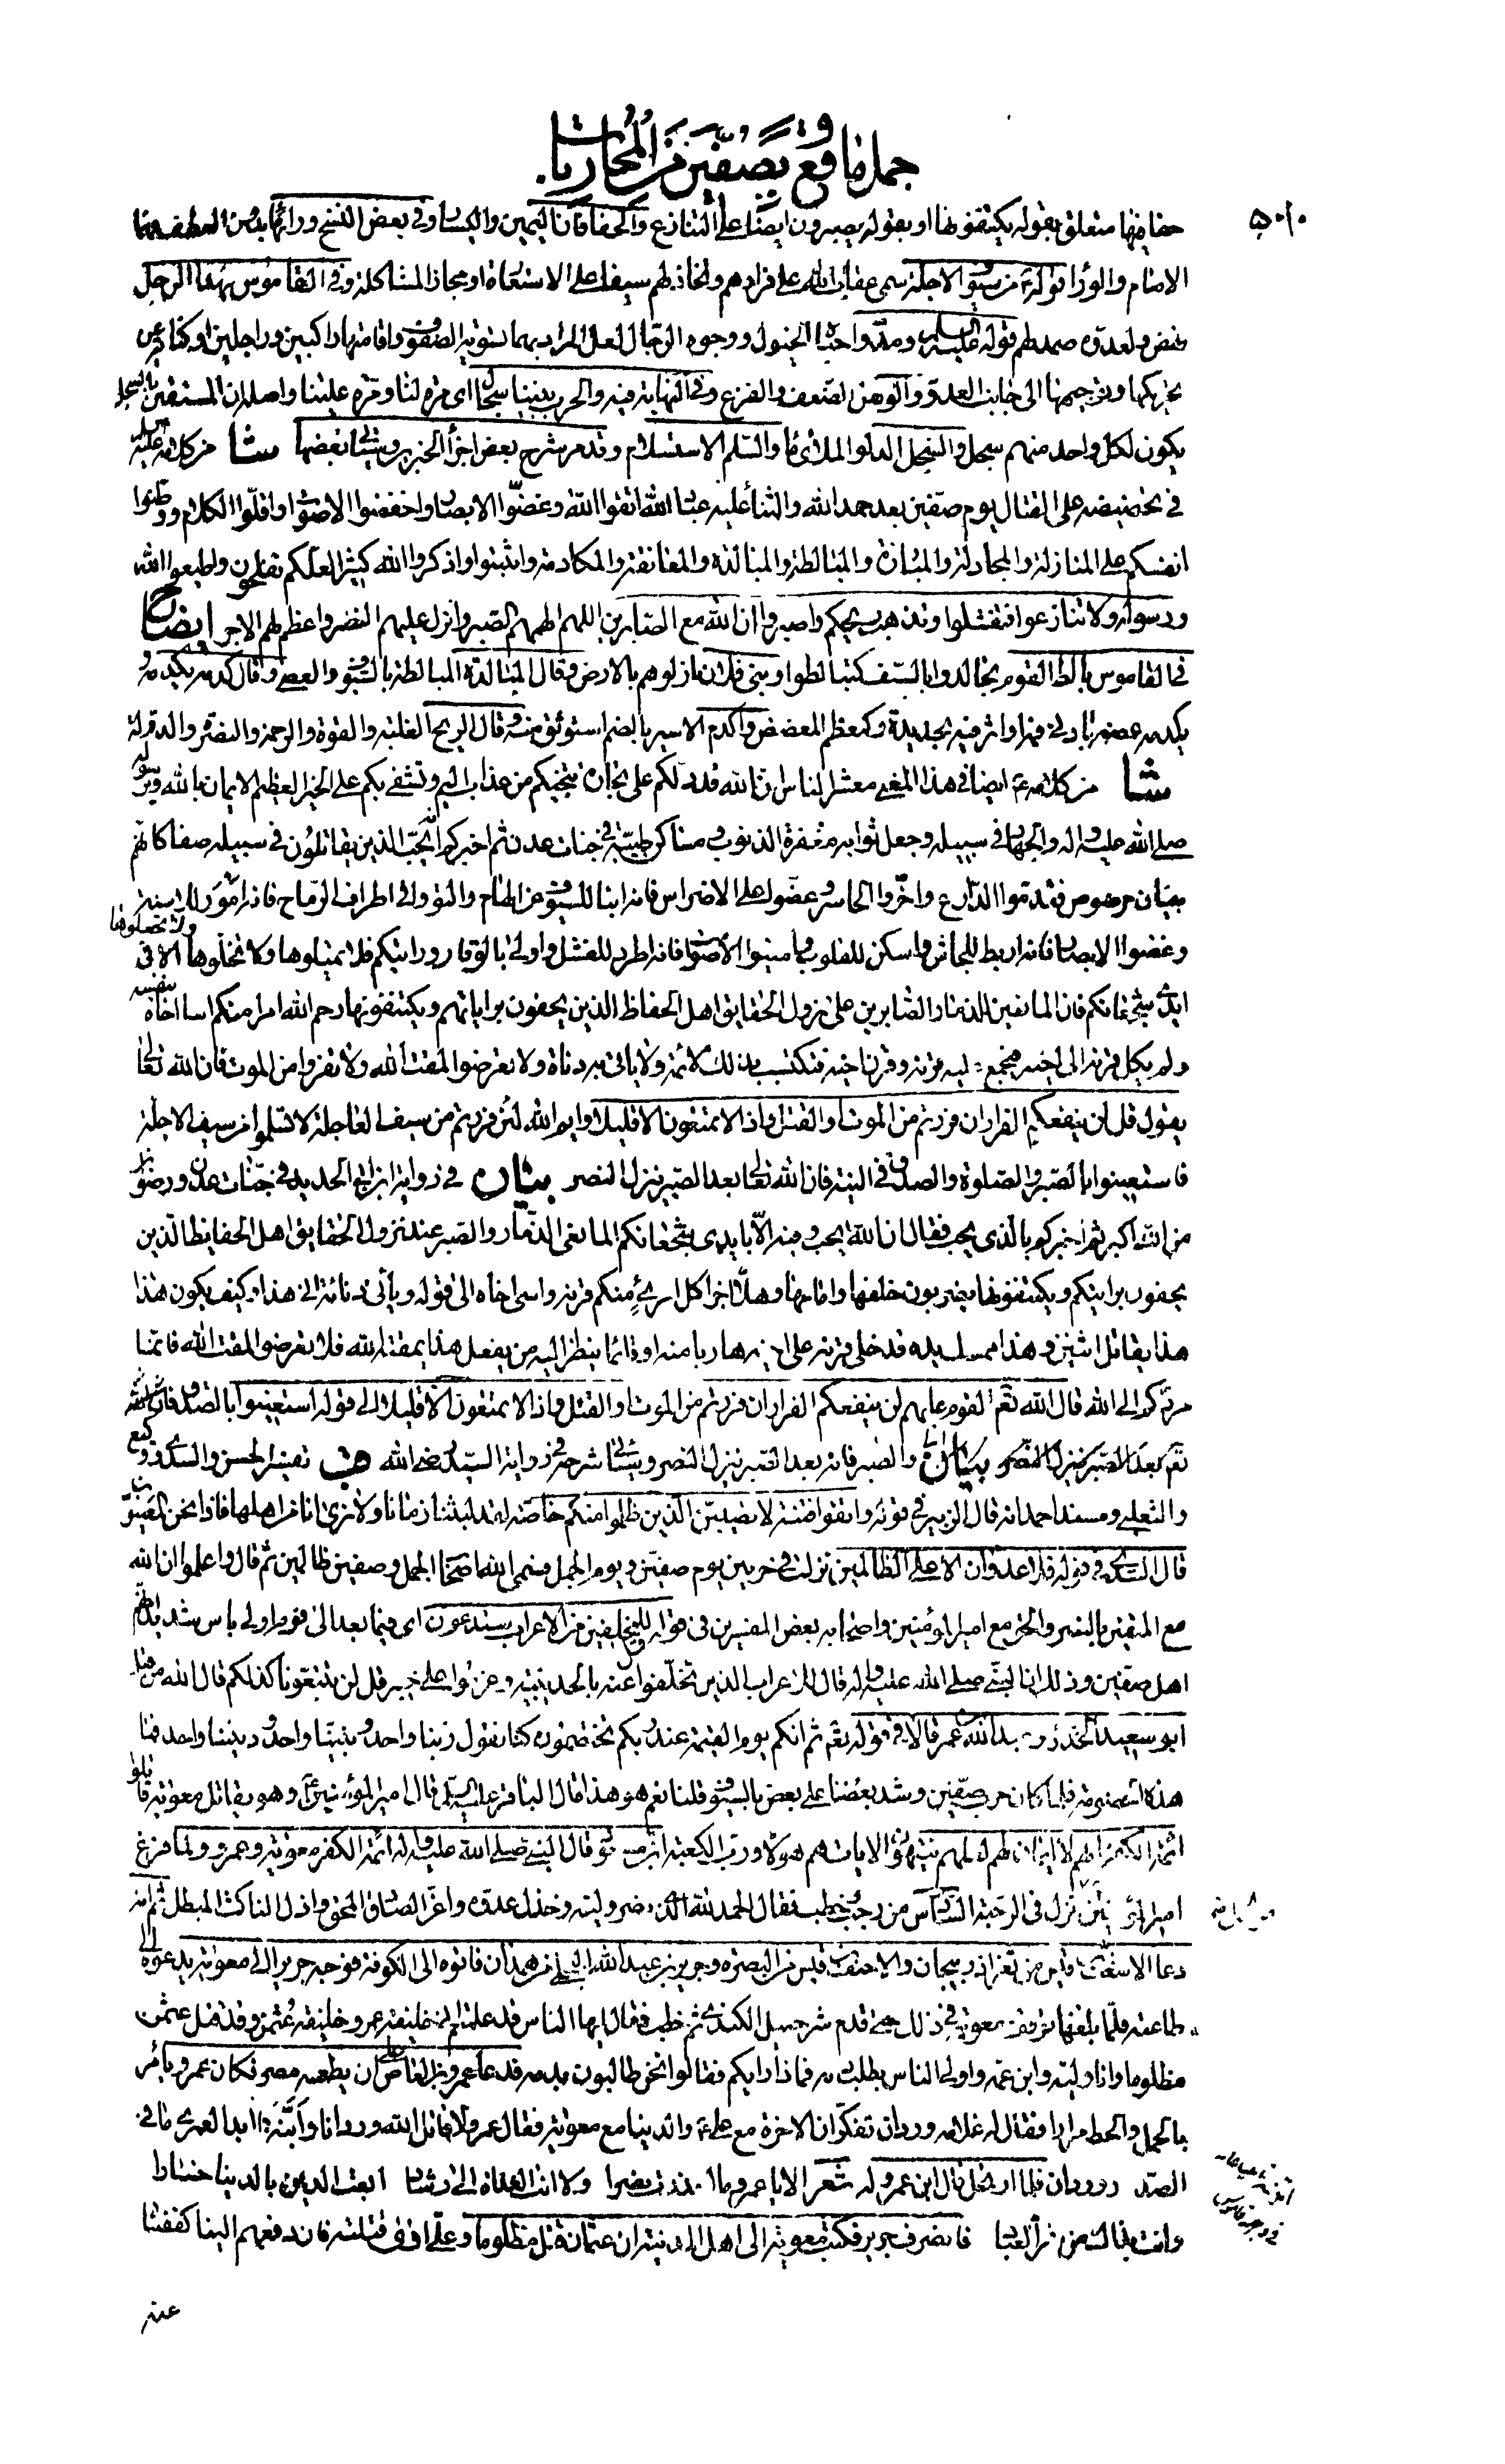 جمل ما وقع بصفين من المحاربات
٥٠١
حفافيها متعلق بقوله يكتنفونها او بقوله يصبرون ايضا على التنازع والحفافان اليمين واليسار وفي بعض النسخ ورائها بدون العطف
الامام والورا قوله ع من سيوف الاجلة سمى عقاب الله على فرارهم سيفا على الاستعارة او مجاز المشاكلة وفي القاموس نهد الرجل
نهض ولعدوه صمد لهم قوله عليه السلم ومدوا جباه الخيول ووجوه الرجال لعل المراد بهما تسوية الصفوف واقامتها راكبين وراجلين او كناية عن
تحريكها وتوجيهها الى جانب العدو والوهن الضعف والفزع وفي النهاية فيه والحرب بيننا سجال اى مرة لنا ومرة علينا واصله ان المستقين بالسجل
يكون لكل واحد منهم سجل والسجل الدلو الملائ ماء والسلم الاستسلام وقد مر شرح بعض اجزاء الخبر وسياتي بعضها شا من كلامه عليه السلم
في تحضيضه على القتال يوم صفين بعد حمد الله والثناء عليه عباد الله اتقوا الله وغضوا الابصار واخفضوا الاصوات واقلوا الكلام ووطنوا
انفسكم على المنازلة والمجادلة والمبارزة والمبالطة والمبالدة والمعانقة والمكادمة واثبتوا واذكروا الله كثيرا لعلكم تفلحون واطيعوا الله
ورسوله ولا تنازعوا فتفشلوا وتذهب ريحكم واصبروا ان الله مع الصابرين اللهم الهمهم الصبر وانزل عليهم النصر واعظم لهم الاجر ايضاح
في القاموس بالط القوم تجالدوا بالسيف كتبالطوا وبني فلان نازلوهم بالارض وقال المبالدة المبالطة بالسيوف والعصي وقال كدمه يكدمه و
يكدمه عضه بادنى فمه او اثر فيه بحديدة وكمعظم المعضض واكدم الاسير بالضم استوثق منه وقال الريح الغلبة والقوة والرحمة والنصرة والدولة
شا من كلامه ع ايضا في هذا المعنى معشر الناس ان الله قد دلكم على تجارة تنجيكم من عذاب اليم وتشفي بكم على الخير العظيم الايمان بالله وبرسوله
صلى الله عليه واله والجهاد في سبيله وجعل ثوابه مغفرة الذنوب ومساكن طيبة في جنات عدن ثم اخبركم انه يحب الذين يقاتلون في سبيله صفا كانهم
بنيان مرصوص فقدموا الدارع واخروا الحاسر وعضوا على الاضراس فانه انبا للسيوف عن الهام والتووا في اطراف الرماح فانه امور للاسنة
وغضوا الابصار فانه اربط للجأش واسكن للقلوب واميتوا الاصوات فانه اطرد للفشل واولى بالوقار ورايتكم فلا تميلوها ولا تخلوها ولا تجعلوها الا في
ايدي شجعانكم فان المانعين الذمار والصابرين على نزول الحقايق اهل الحفاظ الذين يحفون براياتهم ويكتنفونها رحم الله امرا منكم اسا اخاه بنفسه
ولم يكل قرنه الى اخيه فيجمع عليه قرنه وقرن اخيه فيكتسب بذلك لائمة ولا ياتي به دناة ولا تعرضوا لمقت الله ولا تفروا من الموت فان الله تعالى
يقول قل لن ينفعكم الفرار ان فررتم من الموت او القتل واذا لا تمتعون الا قليلا وايم الله لئن فررتم من سيف العاجلة لا تسلموا من سيف الاجلة
فاستعينوا بالصبر والصلوة والصدق في النية فان الله تعالى بعد الصبر ينزل النصر بيان في رواية ابن ابي الحديد في جنات عدن ورضوان
من الله اكبر ثم اخبركم بالذي يحب فقال ان الله يحب ومنه الا بايدي شجعانكم المانعي الذمار والصبر عند نزول الحقايق اهل الحفايظ الذين
يحفون برايتكم ويكتنفونها يضربون خلفها وامامها وهلا اجزا كل امرئ منكم قرنه واسى اخاه الى قوله وياتي دنائة الى هذا وكيف يكون هذا
هذا يقاتل اثنين وهذا ممسك يده قد خلى قرنه على اخيه هاربا منه او قائما ينظر اليه من يفعل هذا يمقته الله فلا تعرضوا لمقت الله فانما
مردكم الى الله قال الله تعم لقوم عابهم لن ينفعكم الفرار ان فررتم من الموت او القتل واذا لا تمتعون الا قليلا الى قوله استعينوا بالصدق
والصبر فانه بعد الصبر ينزل النصر وسياتي شرحه في رواية السيد رضي الله قب تفسير الحسن والسدي ووكيع
والثعلبي ومسند احمد انه قال الزبير في قوله واتقوا فتنة لا تصيبن الذين ظلموا منكم خاصة لقد لبثنا زمانا ولا نرى انا من اهلها فاذا نحن المعنيون
قال السدي في قوله فلا عدوان الا على الظالمين نزلت في حربين يوم صفين ويوم الجمل فسمى الله اصحاب الجمل وصفين ظالمين ثم قال واعلموا ان الله
مع المتقين بالنصر والحق مع امير المؤمنين واصحابه بعض المفسرين في قوله قل للمخلفين من الاعراب ستدعون اى فيما بعد الى قوم اولي باس شديد انهم
اهل صفين وذلك ان النبي صلى الله عليه واله قال للاعراب الذين تخلفوا عنه بالحديبية وعزموا على خيبر قل لن تتبعونا كذلكم قال الله من قبل
ابو سعيد الخدري وعبد الله بن عمر قالا في قوله تعم ثم انكم يوم القيمة عند ربكم تختصمون كنا نقول ربنا واحد ونبينا واحد وديننا واحد فما
هذه الخصومة فلما كان حرب صفين وشد بعضنا على بعض بالسيوف قلنا نعم هو هذا قال الباقر عليه السلم قال امير المؤمنين ع وهو يقاتل معوية قاتلوا
ائمة الكفر انهم لا ايمان لهم لعلهم ينتهون الايات هم هولاء ورب الكعبة ابن مسعود قال النبي صلى الله عليه واله ائمة الكفر معوية وعمرو ولما فرغ
امير المؤمنين نزل في الرحبة السادس من رجب وخطب فقال الحمد لله الذي نصر وليه وخذل عدوه واعز الصادق المحق واذل الناكث المبطل ثم انه
دعا الاشعث بن قيس من ثغر اذربيجان والاحنف بن قيس من البصرة وجرير بن عبد الله البجلي من همدان فاتوه الى الكوفة فوجه جرير الى معوية يدعوه الى
طاعته فلما بلغها توقف معوية في ذلك حتى قدم شرحبيل الكندي ثم خطب فقال ايها الناس قد علمتم اني خليفة عمر وخليفة عثمن وقد قتل عثمن
مظلوما وانا وليه وابن عمه واولى الناس بطلب دمه فماذا رايكم فقالوا نحن طالبون بدمه فدعا عمرو بن العاص على ان يطعمه مصر فكان عمرو يامر
بالحمل والحط مرارا فقال له غلامه وردان تفكر ان الاخرة مع علي ع والدنيا مع معوية فقال عمرو لا قاتل الله وردانا وابنه ابدا لعمري ما في
الصدر وردان فلما ارتحل قال ابن عمرو له شعر الا يا عمرو ما احرزت نصرا ولا انت الغداة الى رشاد ابعت الدين بالدنيا خسارا
وانت بذاك من شر العباد فانصرف جرير فكتب معوية الى اهل المدينة ان عثمان قتل مظلوما وعلي اوى قتلته فان دفعهم الينا كففنا
عنه